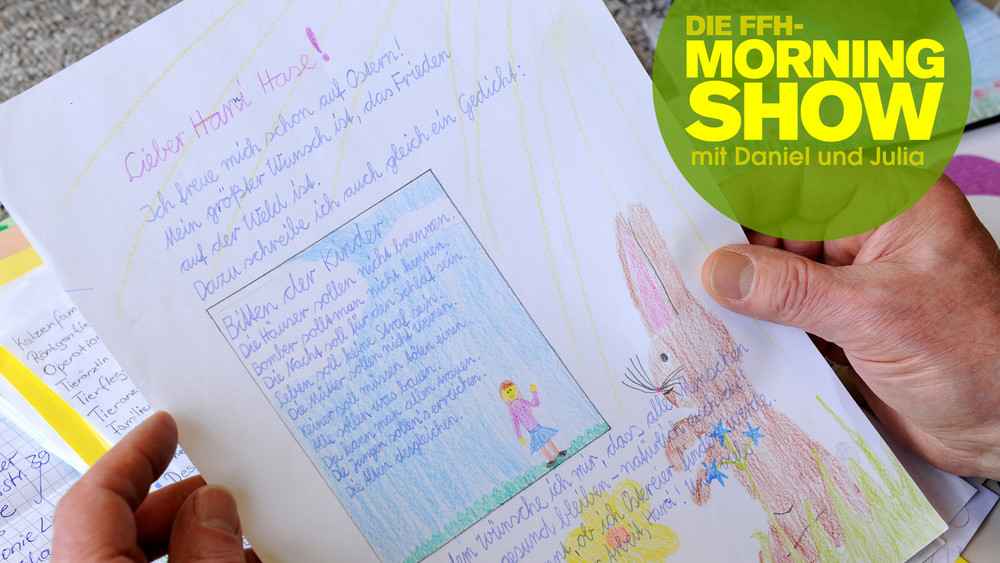 DIE FFH-
MORNING
SHOW
mit Daniel und Julia
Lieber Hani Hase!
Ich freue mich schon auf Ostern!
Mein größter Wunsch ist, das Frieden
auf der Weld ist.
Dazu schreibe ich auch gleich ein Gedicht:
Bitten der Kinder
Die Häuser sollen nicht brennen.
Bomber sollt man nicht kennen.
Die Nacht soll für den Schlaf sein.
Leben soll keine Straf sein.
Die Mütter sollen nicht weinen.
Keiner soll müssen töten einen.
Alle sollen was bauen.
Da kann man allen trauen.
Die Jungen sollen's erreichen.
Die Alten desgleichen.
dem wünsche ich mir, dass alle Menschen
gesund bleiben - natürlich auch du!
ob ich Ostereier
Katzenfam
Röntgen
Operation
Tierärztin
Tierpfleg
Tierarz
Familie
39